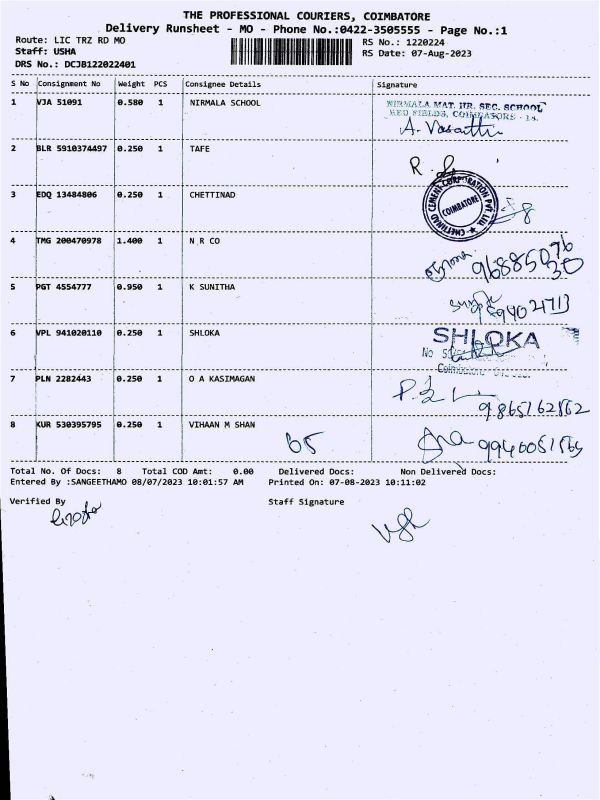 THE PROFESSIONAL COURIERS, COIMBATORE
Delivery Runsheet - MO - Phone No.:0422-3505555 - Page No.:1
Route: LIC TRZ RD MO
RS No.: 1220224
Staff: USHA
RS Date: 07-Aug-2023
DRS No.: DCJB122022401
S No Consignment No Weight PCS Consignee Details Signature
1 VJA 51091 0.580 1 NIRMALA SCHOOL
NIRMALA MAT. HR. SEC. SCHOOL
RED FIELDS, COIMBATORE - 18.
A. Vasanthi
2 BLR 5910374497 0.250 1 TAFE
3 EDQ 13484806 0.250 1 CHETTINAD
CHETTINAD CEMENT CORPORATION PVT. LTD.
COIMBATORE
4 TMG 200470978 1.400 1 N R CO
5 PGT 4554777 0.950 1 K SUNITHA
6 VPL 941020110 0.250 1 SHLOKA
SHLOKA
No
7 PLN 2282443 0.250 1 O A KASIMAGAN
8 KUR 530395795 0.250 1 VIHAAN M SHAN
Total No. Of Docs: 8 Total COD Amt: 0.00 Delivered Docs: Non Delivered Docs:
Entered By :SANGEETHAMO 08/07/2023 10:01:57 AM Printed On: 07-08-2023 10:11:02
Verified By Staff Signature